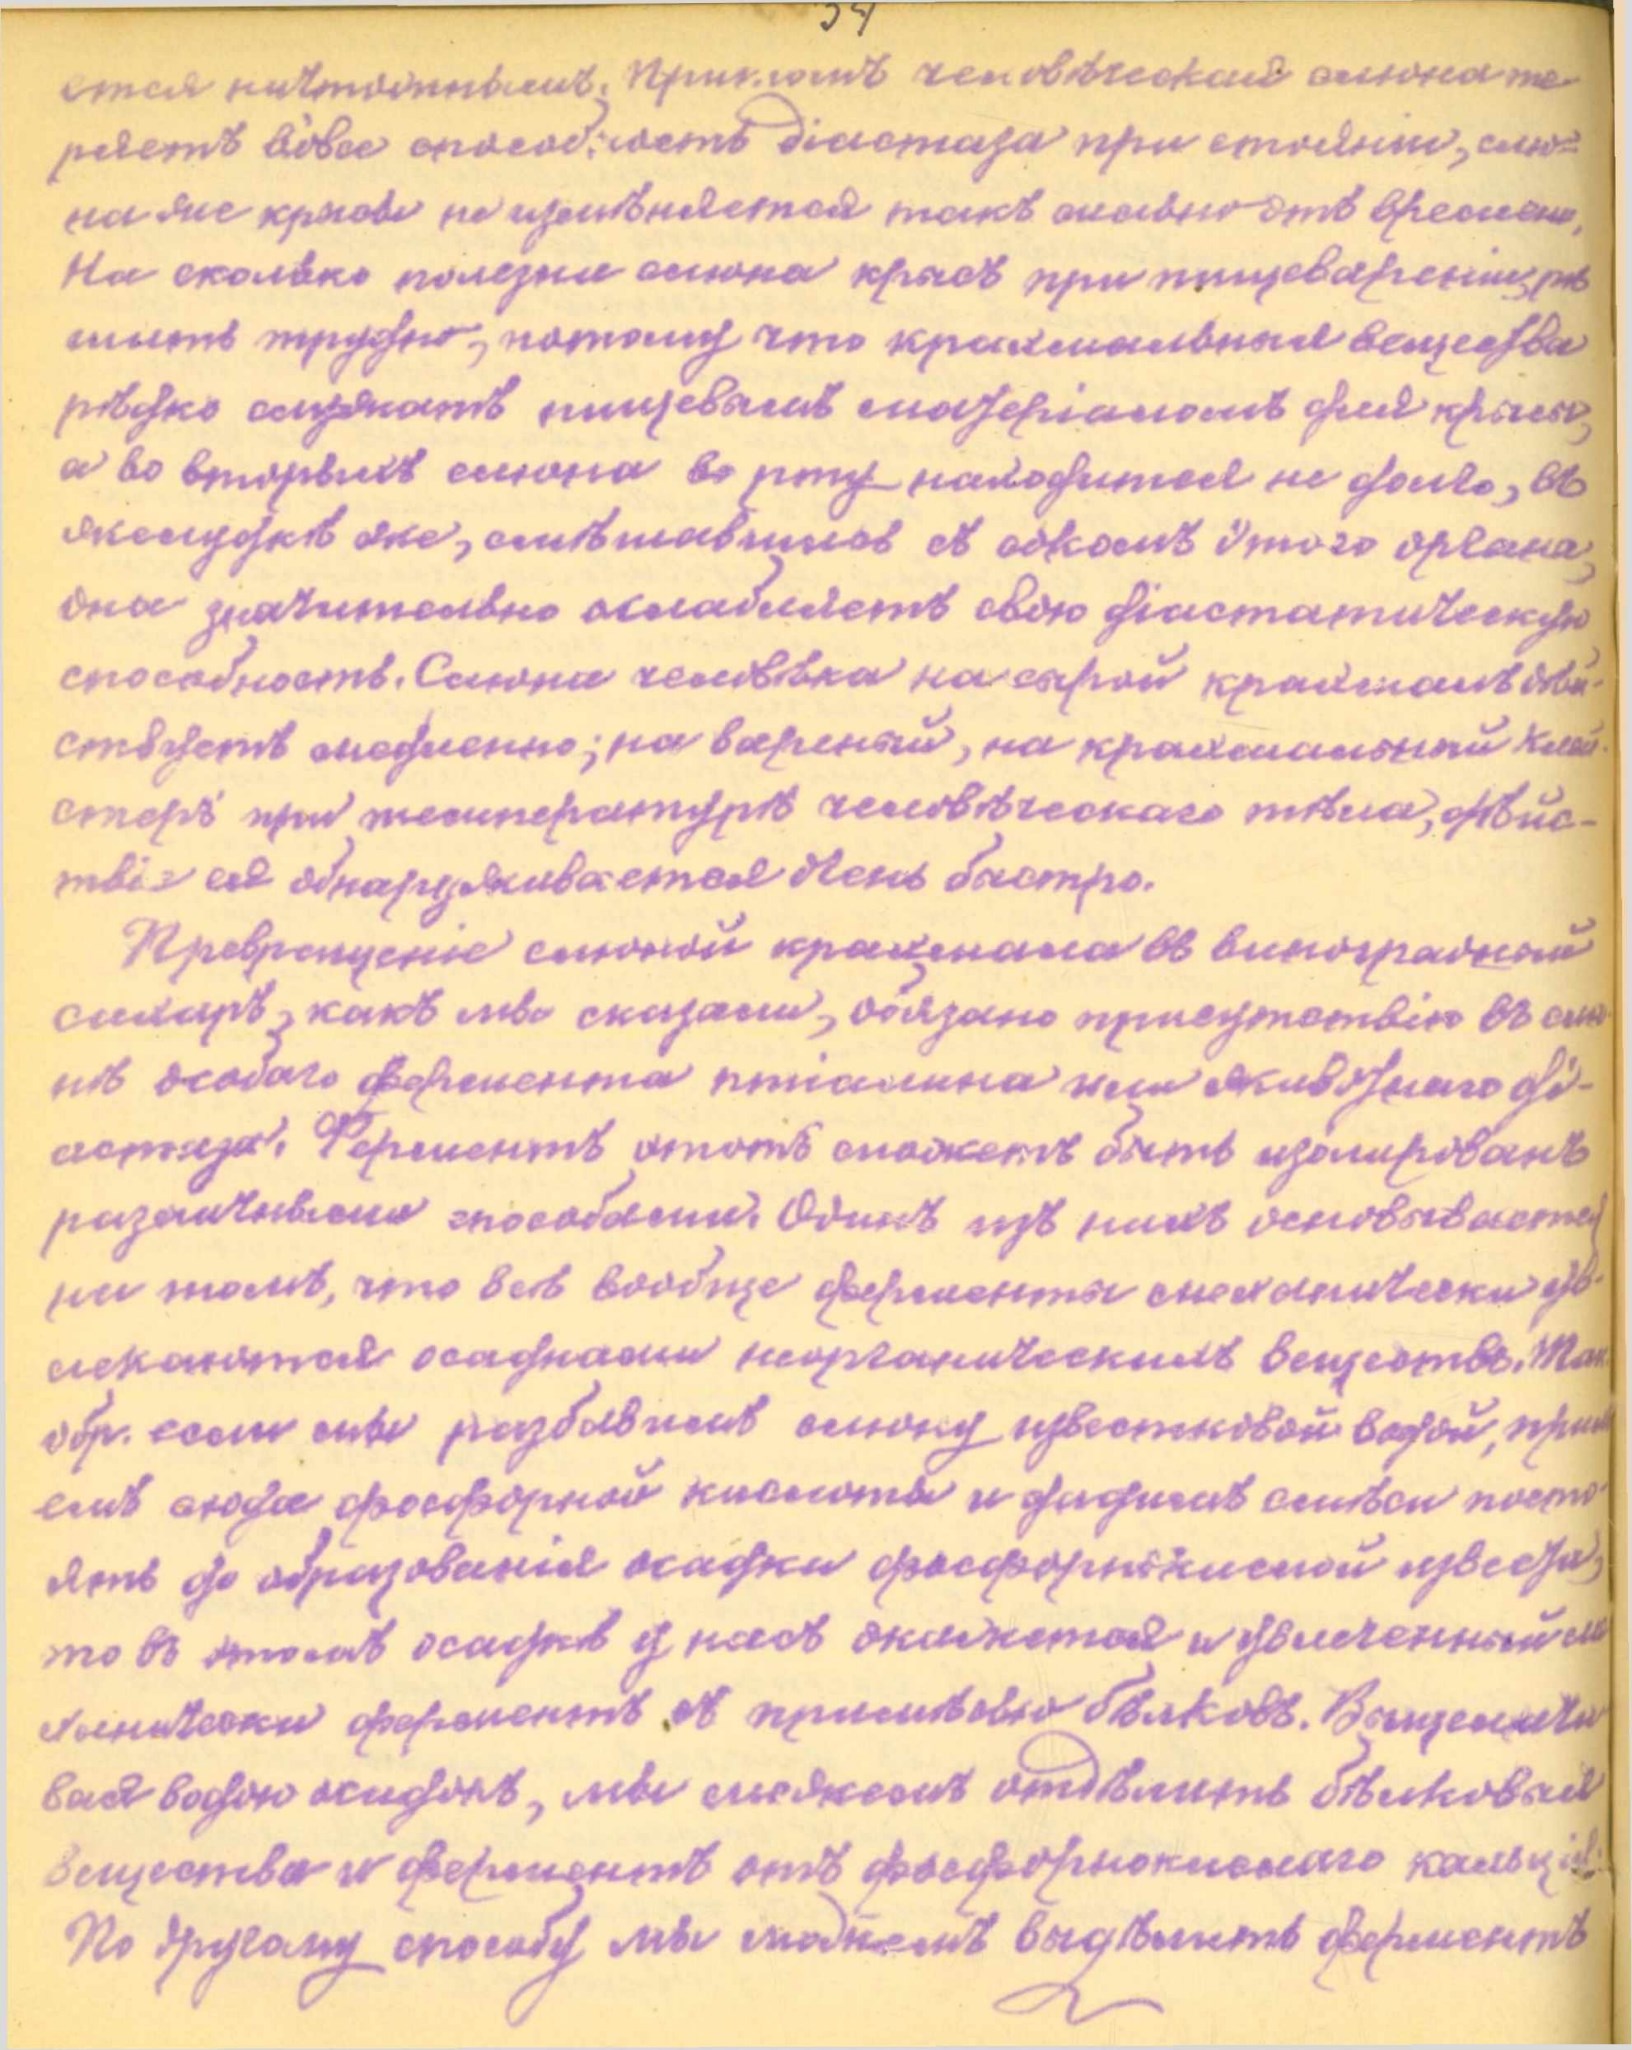 34
ется ничтожнымъ. Притомъ человѣческая слюна те-
ряетъ вовсе способность діастаза при стояніи, слю-
на же крысы не измѣняется такъ сильно отъ времени.
На сколько полезна слюна крысѣ при пищевареніи, рѣ
шить трудно, потому что крахмальныя вещества
рѣдко служатъ пищевымъ матеріаломъ для крысы,
а во вторыхъ слюна во рту находится не долго, въ
желудкѣ же, смѣшавшись съ сокомъ этого органа,
она значительно ослабляетъ свою діастатическую
способность. Слюна человѣка на сырой крахмалъ дѣй-
ствуетъ медленно; на вареный, на крахмальный клей-
стеръ при температурѣ человѣческаго тѣла, дѣйс-
твіе ея обнаруживается очень быстро.
Превращеніе слюной крахмала въ виноградный
сахаръ, какъ мы сказали, обязано присутствію въ слю-
нѣ особаго фермента птіалина или животнаго ді-
астаза. Ферментъ этотъ можетъ быть изолированъ
различными способами. Одинъ изъ нихъ основывается
на томъ, что всѣ вообще ферменты механически ув-
лекаются осадками неорганическихъ веществъ. Так.
обр. если мы разбавимъ слюну известковой водой, приль
емъ сюда фосфорной кислоты и дадимъ смѣси посто-
ять до образованія осадка фосфорнокислой извести,
то въ этомъ осадкѣ у насъ окажется и увлеченный ме
ханически ферментъ съ примѣсью бѣлковъ. Выщелачи
вая водою осадокъ, мы можемъ отдѣлить бѣлковыя
вещества и ферментъ отъ фосфорнокислаго кальція.
По другому способу мы можемъ выдѣлить ферментъ